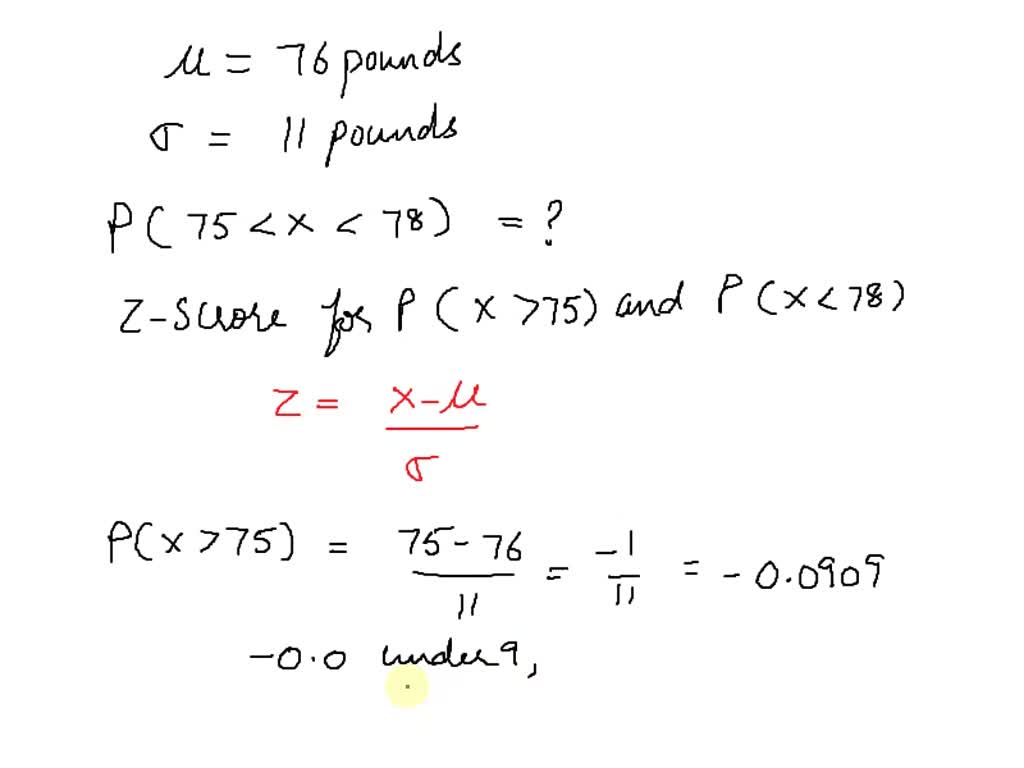 μ = 76 pounds
σ = 11 pounds
P( 75 < x < 78) = ?
Z-Score for P ( x > 75) and P ( x < 78)
z = x-μ / σ
P(x > 75) = 75-76 / 11 = -1 / 11 = -0.0909
-0.0 under 9,